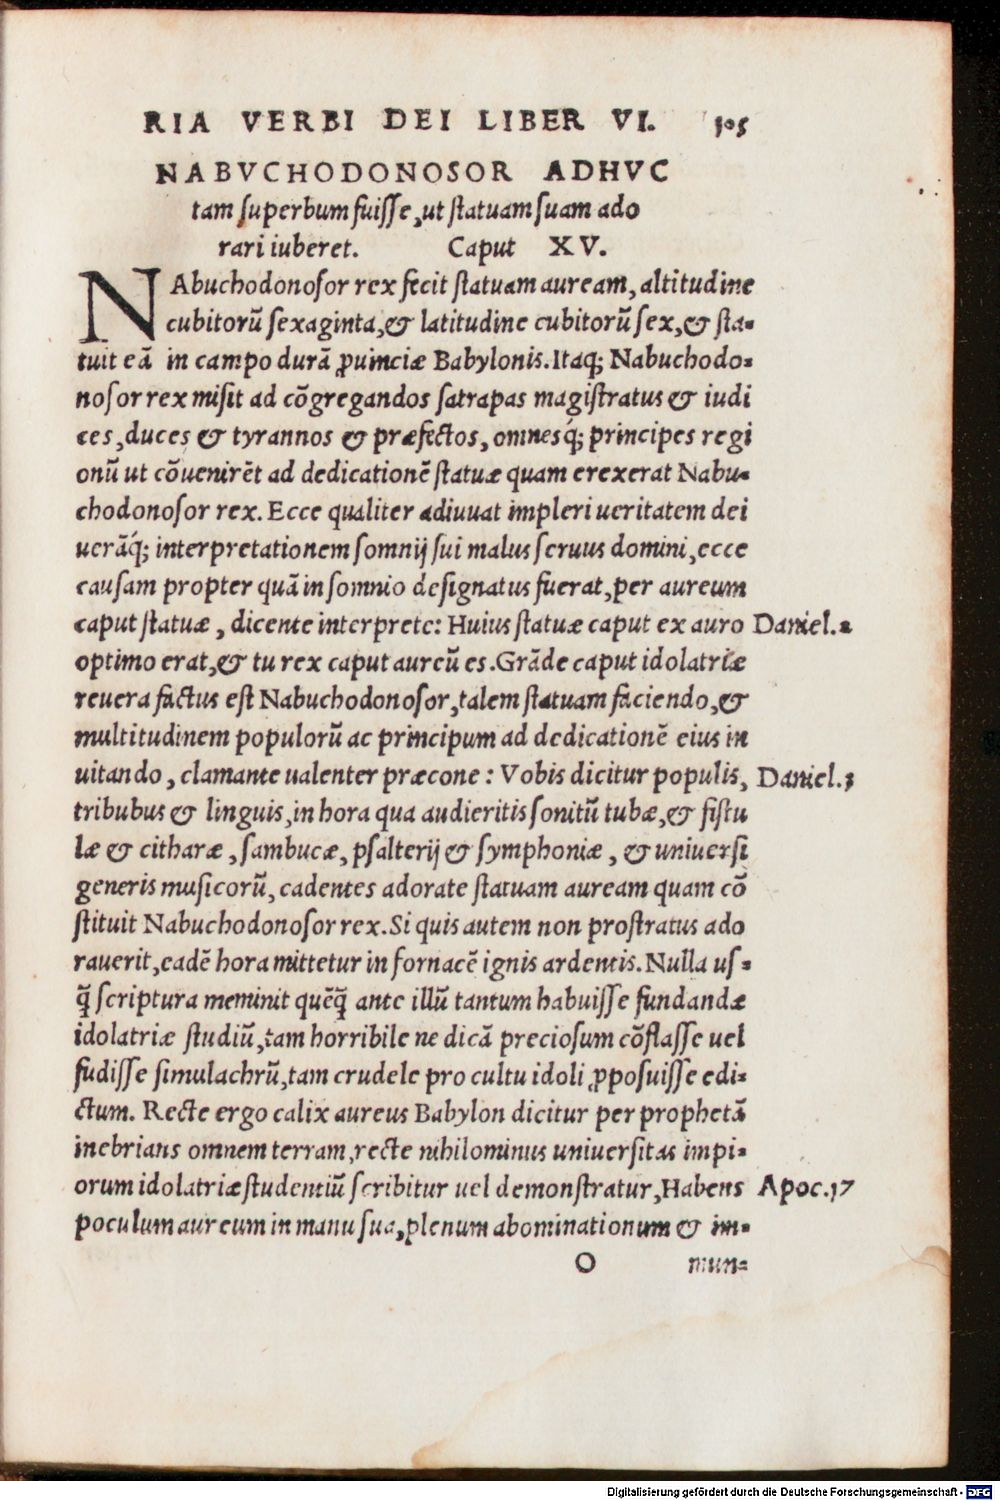 RIA VERBI DEI LIBER VI. 105
NABVCHODONOSOR ADHVC
tam superbum fuisse, ut statuam suam ado
rari iuberet. Caput XV.
NAbuchodonosor rex fecit statuam auream, altitudine
cubitorũ sexaginta, & latitudine cubitorũ sex, & sta-
tuit eã in campo durã ꝓuinciæ Babylonis. Itaq; Nabuchodo-
nosor rex misit ad cõgregandos satrapas magistratus & iudi
ces, duces & tyrannos & præfectos, omnesq́; principes regi
onũ ut cõuenirẽt ad dedicationẽ statuæ quam erexerat Nabu-
chodonosor rex. Ecce qualiter adiuuat impleri ueritatem dei
uerãq́; interpretationem somnij sui malus seruus domini, ecce
causam propter quã in somnio designatus fuerat, per aureum
caput statuæ, dicente interprete: Huius statuæ caput ex auro Daniel. 2
optimo erat, & tu rex caput aureũ es. Grãde caput idolatriæ
reuera factus est Nabuchodonosor, talem statuam faciendo, &
multitudinem populorũ ac principum ad dedicationẽ eius in
uitando, clamante ualenter præcone: Vobis dicitur populis, Daniel. 3
tribubus & linguis, in hora qua audieritis sonitũ tubæ, & fistu
læ & citharæ, sambucæ, psalterij & symphoniæ, & uniuersi
generis musicorũ, cadentes adorate statuam auream quam cõ
stituit Nabuchodonosor rex. Si quis autem non prostratus ado
rauerit, eadẽ hora mittetur in fornacẽ ignis ardentis. Nulla us-
q̃ scriptura meminit quẽq̃ ante illũ tantum habuisse fundandæ
idolatriæ studiũ, tam horribile ne dicã preciosum cõflasse uel
fudisse simulachrũ, tam crudele pro cultu idoli ꝓposuisse edi-
ctum. Recte ergo calix aureus Babylon dicitur per prophetã
inebrians omnem terram, recte nihilominus uniuersitas impi-
orum idolatriæ studentiũ scribitur uel demonstratur, Habens Apoc. 17
poculum aureum in manu sua, plenum abominationum & im-
O mun-
Digitalisierung gefördert durch die Deutsche Forschungsgemeinschaft - DFG